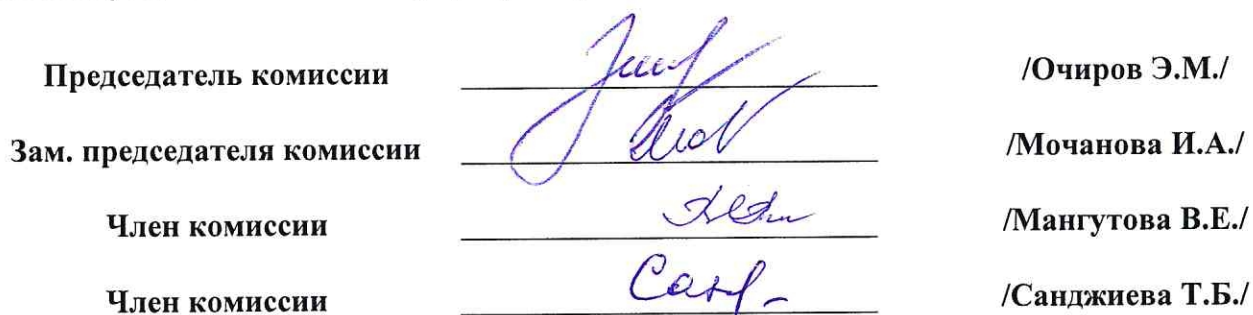 Председатель комиссии /Очиров Э.М./
Зам. председателя комиссии /Мочанова И.А./
Член комиссии /Мангутова В.Е./
Член комиссии /Санджиева Т.Б./